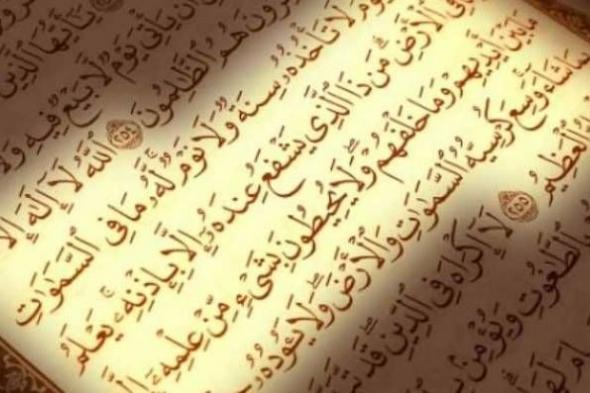 يَٰٓأَيُّهَا ٱلَّذِينَ
أَن يَأْتِىَ يَوْمٌ لَّا بَيْعٌ فِيهِ وَلَا
هُمُ ٱلظَّٰلِمُونَ ٢٥٤ ٱللَّهُ لَآ إِلَٰهَ إِلَّا
لَا تَأْخُذُهُۥ سِنَةٌ وَلَا نَوْمٌ لَّهُۥ مَا فِى ٱلسَّمَٰوَٰتِ
فِى ٱلْأَرْضِ مَن ذَا ٱلَّذِى يَشْفَعُ عِندَهُۥٓ إِلَّا بِإِذْنِهِۦ يَعْلَمُ
مَا بَيْنَ أَيْدِيهِمْ وَمَا خَلْفَهُمْ وَلَا يُحِيطُونَ بِشَىْءٍ مِّنْ عِلْمِهِۦٓ إِلَّا
بِمَا شَآءَ وَسِعَ كُرْسِيُّهُ ٱلسَّمَٰوَٰتِ وَٱلْأَرْضَ وَلَا يَـُٔودُهُۥ
ٱلْعَظِيمُ ٢٥٥ لَآ إِكْرَاهَ فِى ٱلدِّينِ قَد تَّبَيَّنَ
بِٱلطَّٰغُوتِ وَيُؤْمِنۢ